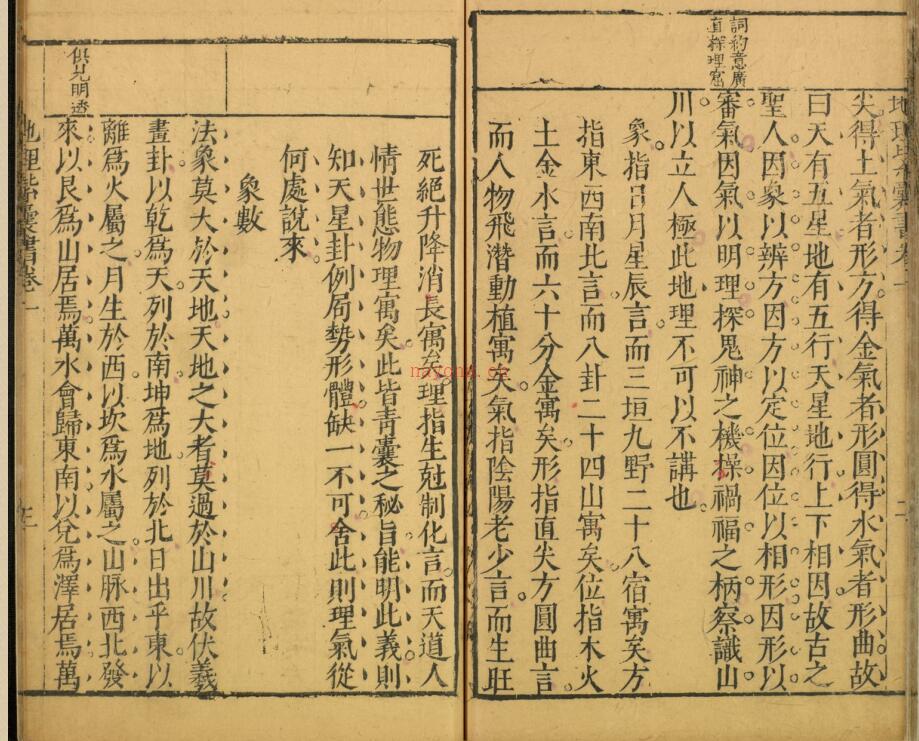 詞約意廣
直探理窟
尖得土氣者形方得金氣者形圓得水氣者形曲故
曰天有五星地有五行天星地行上下相因故古之
聖人因象以辨方因方以定位因位以相形因形以
審氣因氣以明理探鬼神之機操禍福之柄察識山
川以立人極此地理不可以不講也
象指日月星辰言而三垣九野二十八宿寓矣方
指東西南北言而八卦二十四山寓矣位指木火
土金水言而六十分金寓矣形指直尖方圓曲言
而人物飛潛動植寓矣氣指陰陽老少言而生旺
死絕升降消長寓矣理指生尅制化言而天道人
情世態物理寓矣此皆青囊之秘旨能明此義則
知天星卦例局勢形體缺一不可舍此則理氣從
何處說來
象數
法象莫大於天地天地之大者莫過於山川故伏羲
畫卦以乾爲天列於南坤爲地列於北日出乎東以
離爲火屬之月生於西以坎爲水屬之山脉西北發
來以艮爲山居焉萬水會歸東南以兌爲澤居焉萬
地理紫囊書卷一
三
明透
maycha.cn